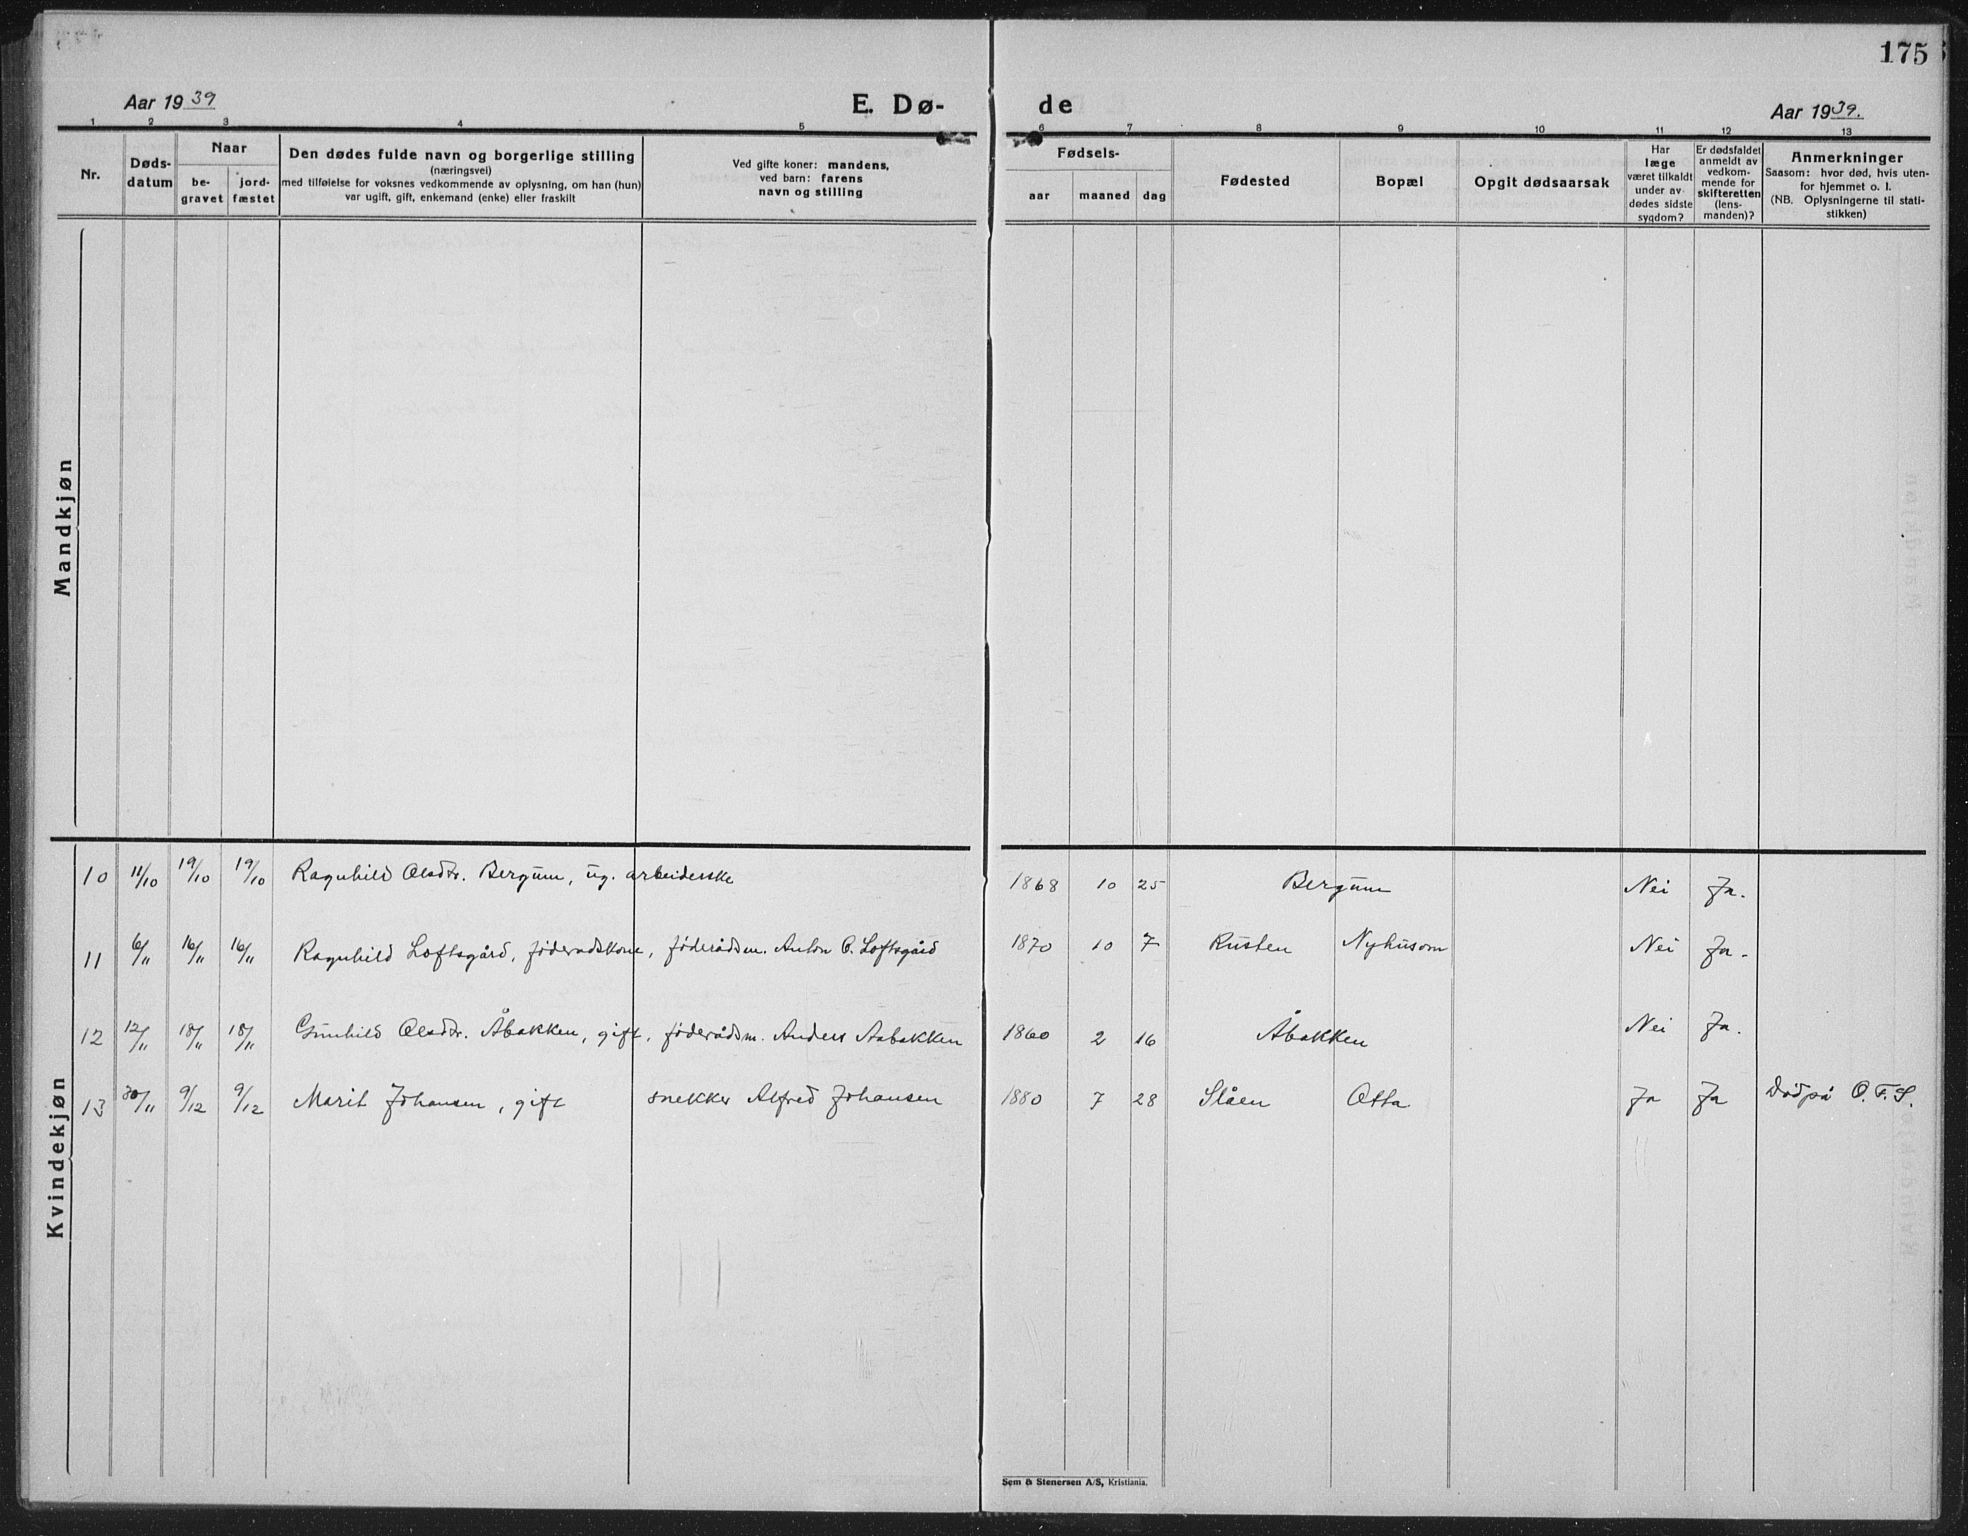 175
Aar 1939 E. Dø- de Aar 1939.
1 2 3 4 5 6 7 8 9 10 11 12 13
Nr.
Døds-
datum
Naar
be-
gravet
jord-
fæstet
Den dødes fulde navn og borgerlige stilling
(næringsvei)
med tilføielse for voksnes vedkommende av oplysning, om han (hun)
var ugift, gift, enkemand (enke) eller fraskilt
Ved gifte koner: mandens,
ved barn: farens
navn og stilling
Fødsels-
aar maaned dag
Fødested
Bopæl
Opgit dødsaarsak
Har
læge
været tilkaldt
under av-
dødes sidste
sygdom?
Er dødsfaldet
anmeldt av
vedkom-
mende for
skifteretten
(lens-
manden)?
Anmerkninger
Saasom: hvor død, hvis uten-
for hjemmet o. l.
(NB. Oplysningerne til stati-
stikken)
Mandkjøn
Kvindekjøn
10 11/10 19/10 19/10 Ragnhild Olsdtr. Bergum, ug. arbeiderske 1868 10 25 Bergum Nei Ja.
11 6/11 16/11 16/11 Ragnhild Loftsgård, föderadskone, föderådsm. Anton O. Loftsgård 1870 10 7 Rusten Nyhusom Nei Ja.
12 12/11 18/11 18/11 Gunhild Olsdtr. Åbakken, gift, föderådsm. Anders Aabakken 1860 2 16 Åbakken Nei Ja.
13 30/11 9/12 9/12 Marit Johansen, gift snekker Alfred Johansen 1880 7 28 Slåen Otta Ja Ja Död på O.F.S.
Sem & Stenersen A/S, Kristiania.